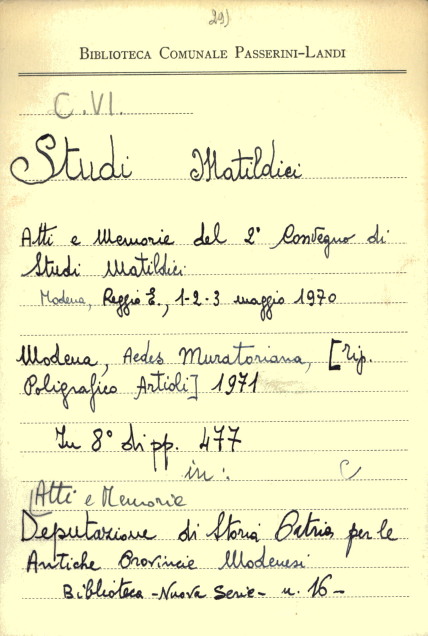 29)
BIBLIOTECA COMUNALE PASSERINI-LANDI
C.VI.
Studi Matildici
Atti e Memorie del 2° Convegno di
Studi Matildici
Modena, Reggio E., 1-2-3 maggio 1970
Modena, Aedes Muratoriana, [Tip.
Poligrafico Artioli] 1971
In 8° di pp. 477
in: C
[Atti e Memorie
Deputazione di Storia Patria per le
Antiche Provincie Modenesi
Biblioteca - Nuova Serie - n. 16 -